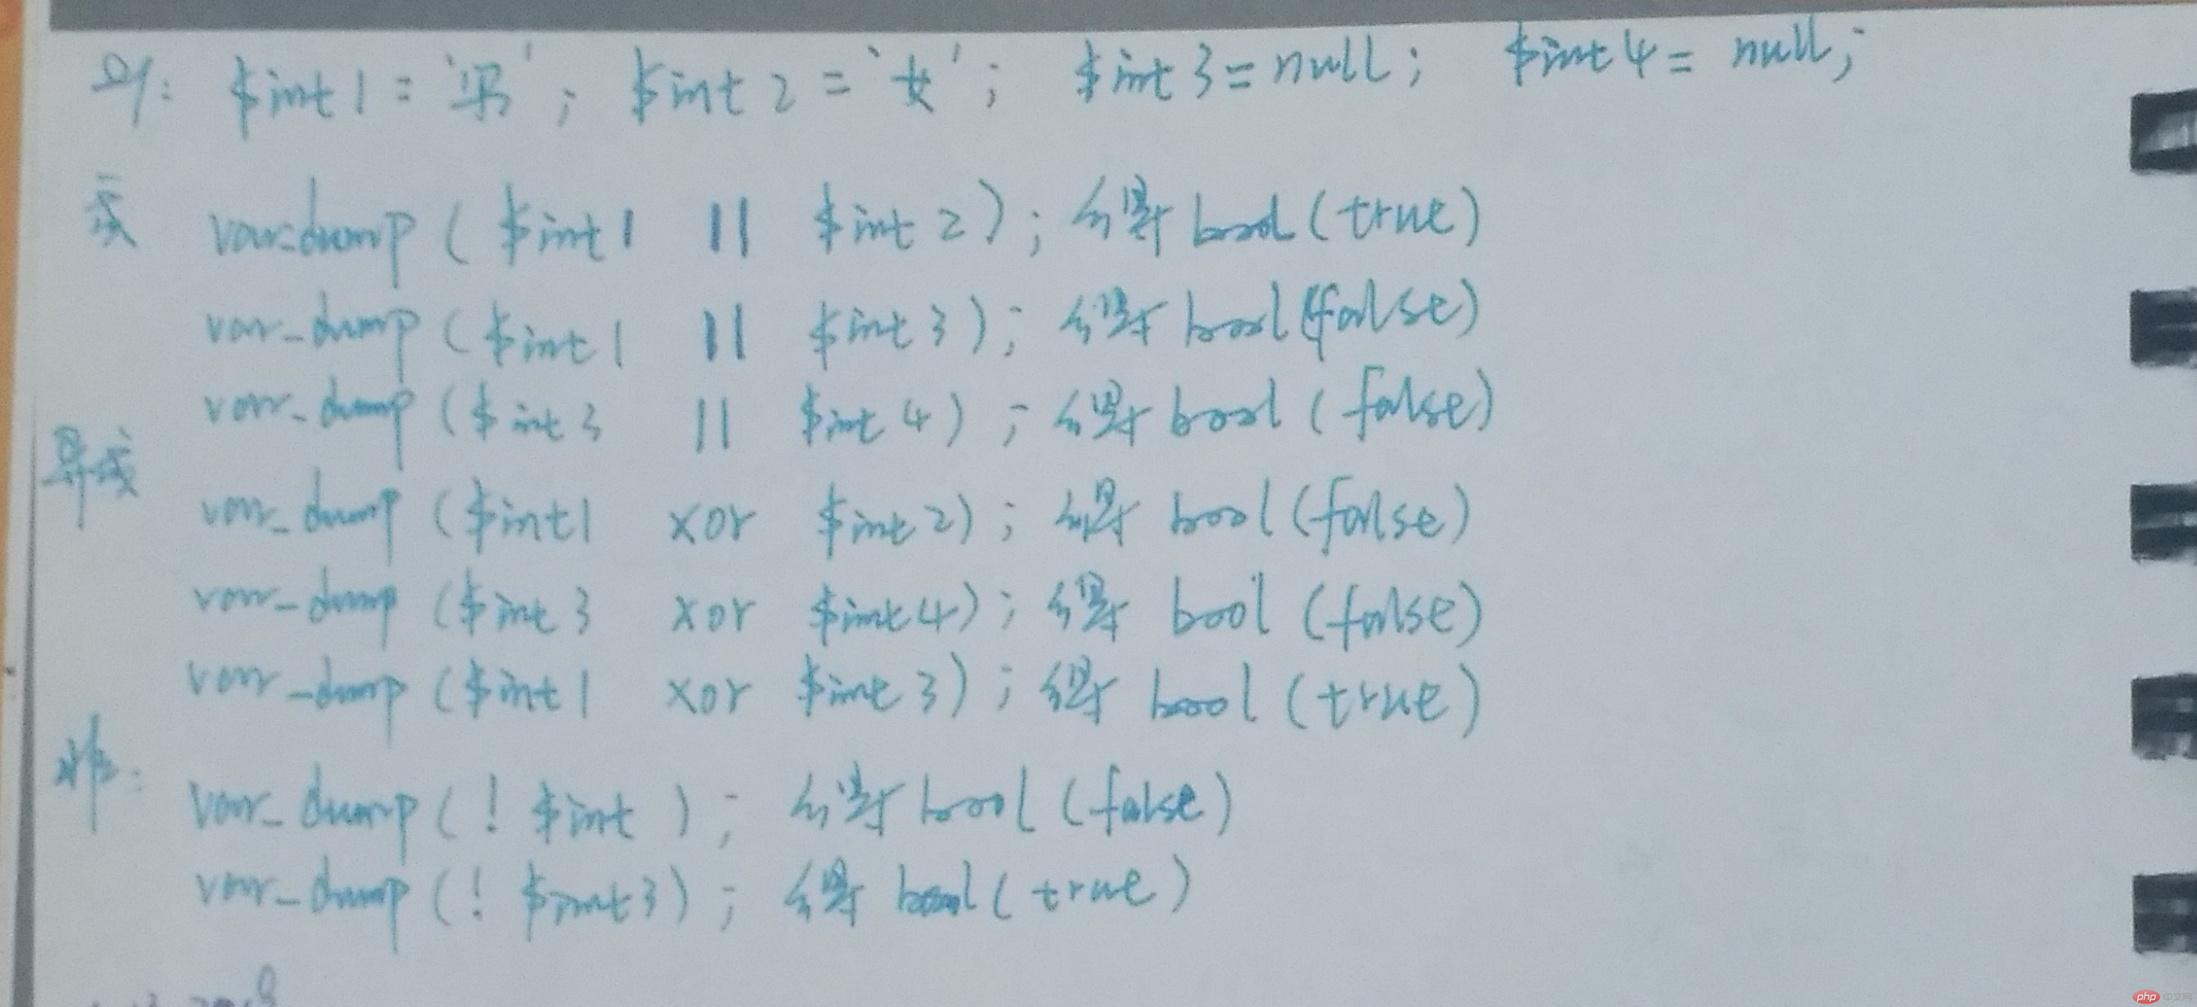 例: $int1 = '男'; $int2 = '女'; $int3 = null; $int4 = null;
或 var_dump ( $int1 || $int2 ); 得 bool (true)
var_dump ( $int1 || $int3 ); 得 bool (false)
var_dump ( $int3 || $int4 ); 得 bool ( false)
异或
var_dump ( $int1 xor $int2 ); 得 bool (false)
var_dump ( $int3 xor $int4 ); 得 bool (false)
var_dump ( $int1 xor $int3 ); 得 bool (true)
非:
var_dump ( ! $int ); 得 bool (false)
var_dump ( ! $int3 ); 得 bool (true)
php 中文网